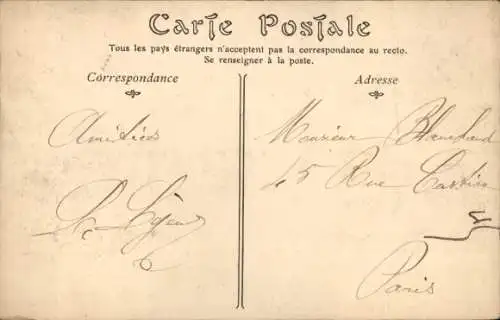 Carte Postale
Tous les pays étrangers n'acceptent pas la correspondance au recto.
Se renseigner à la poste.
Correspondance
Amitiés
Adresse
Monsieur Blanchard
45 Rue
Paris